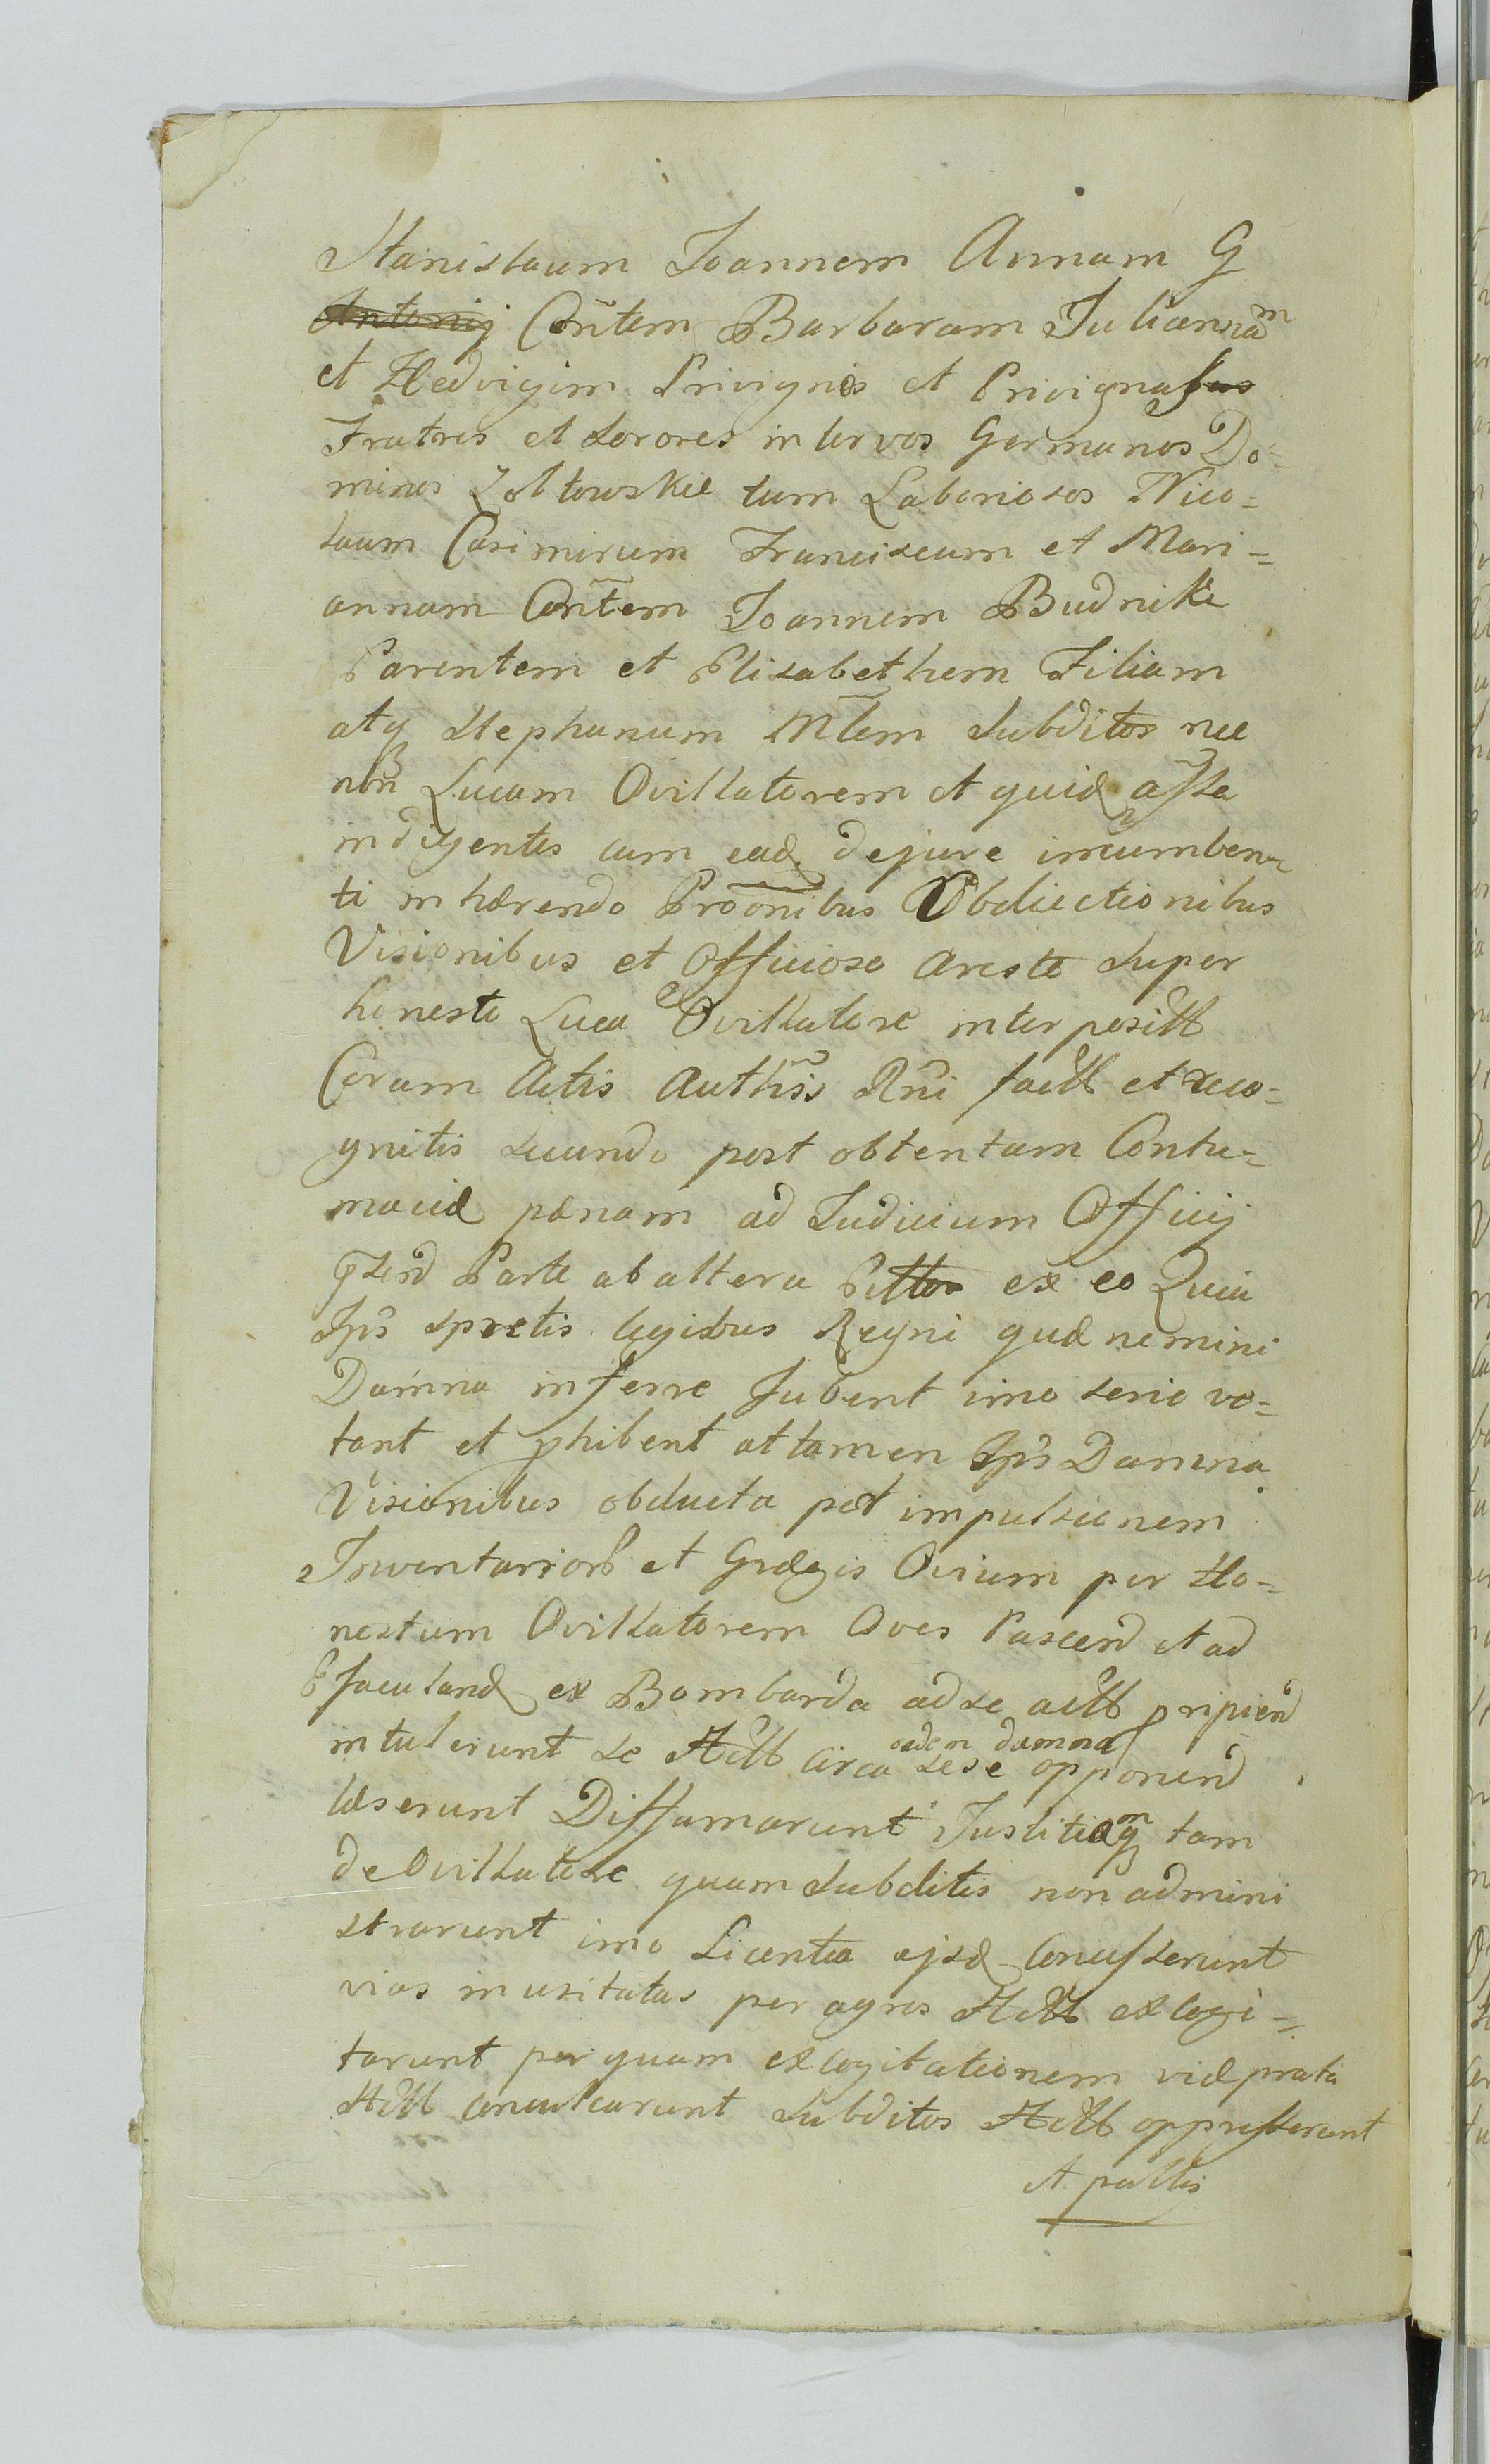 Stanislaum Joannem Annam G
Antonij Cōntem Barbaram Juliannam
et Hedvigim Privignos et Privignas
Fratres et Sorores inter vos Germanos Do=
minos Zoltowskie tum Laboriosos Nico=
laum Casimirum Franciscum et Mari=
annam Cōntem Joannem Budnik
Parentem et Elisabethem Filiam
atq Stephanum Mlem Subditos nec
non Lucam Ovillatorem et quid assa
indigentes cum ead dejure incumben=
ti inhærendo Proōnibus Obductionibus
Visionibus et Officioso Aresto super
honesto Luca Ovillatore interposit
Coram Actis Authīs Rni fact et reco=
gnitis Secundo post obtentam Contu=
maciæ pænam ad Judicium Officij
Parte ab altera Pittos ex eo Quia
Ips spretis legibus Regni quæ nemini
Damna inferre Jubent imo serio ve=
tant et phibent attamen Ips Damna
Visionibus obducta post impulsionem
Inventarior et Grægis Ovium per Ho=
nestum Ovillatorem Oves Pascend et ad
Ejaculand ex Bombarda ad se act pripiend
intulerunt se Act circa eadem damna sese opponend
læserunt Diffamarunt Justitiamq tam
de Ovillatore quam Subditis non admini
strarunt imo Licentia ejsd Concusserunt
vias inusitatas per agros Act excogi=
tarunt per quam excogitationem viæ prata
Act conculcarunt Subditos Act oppresserunt
A pallis